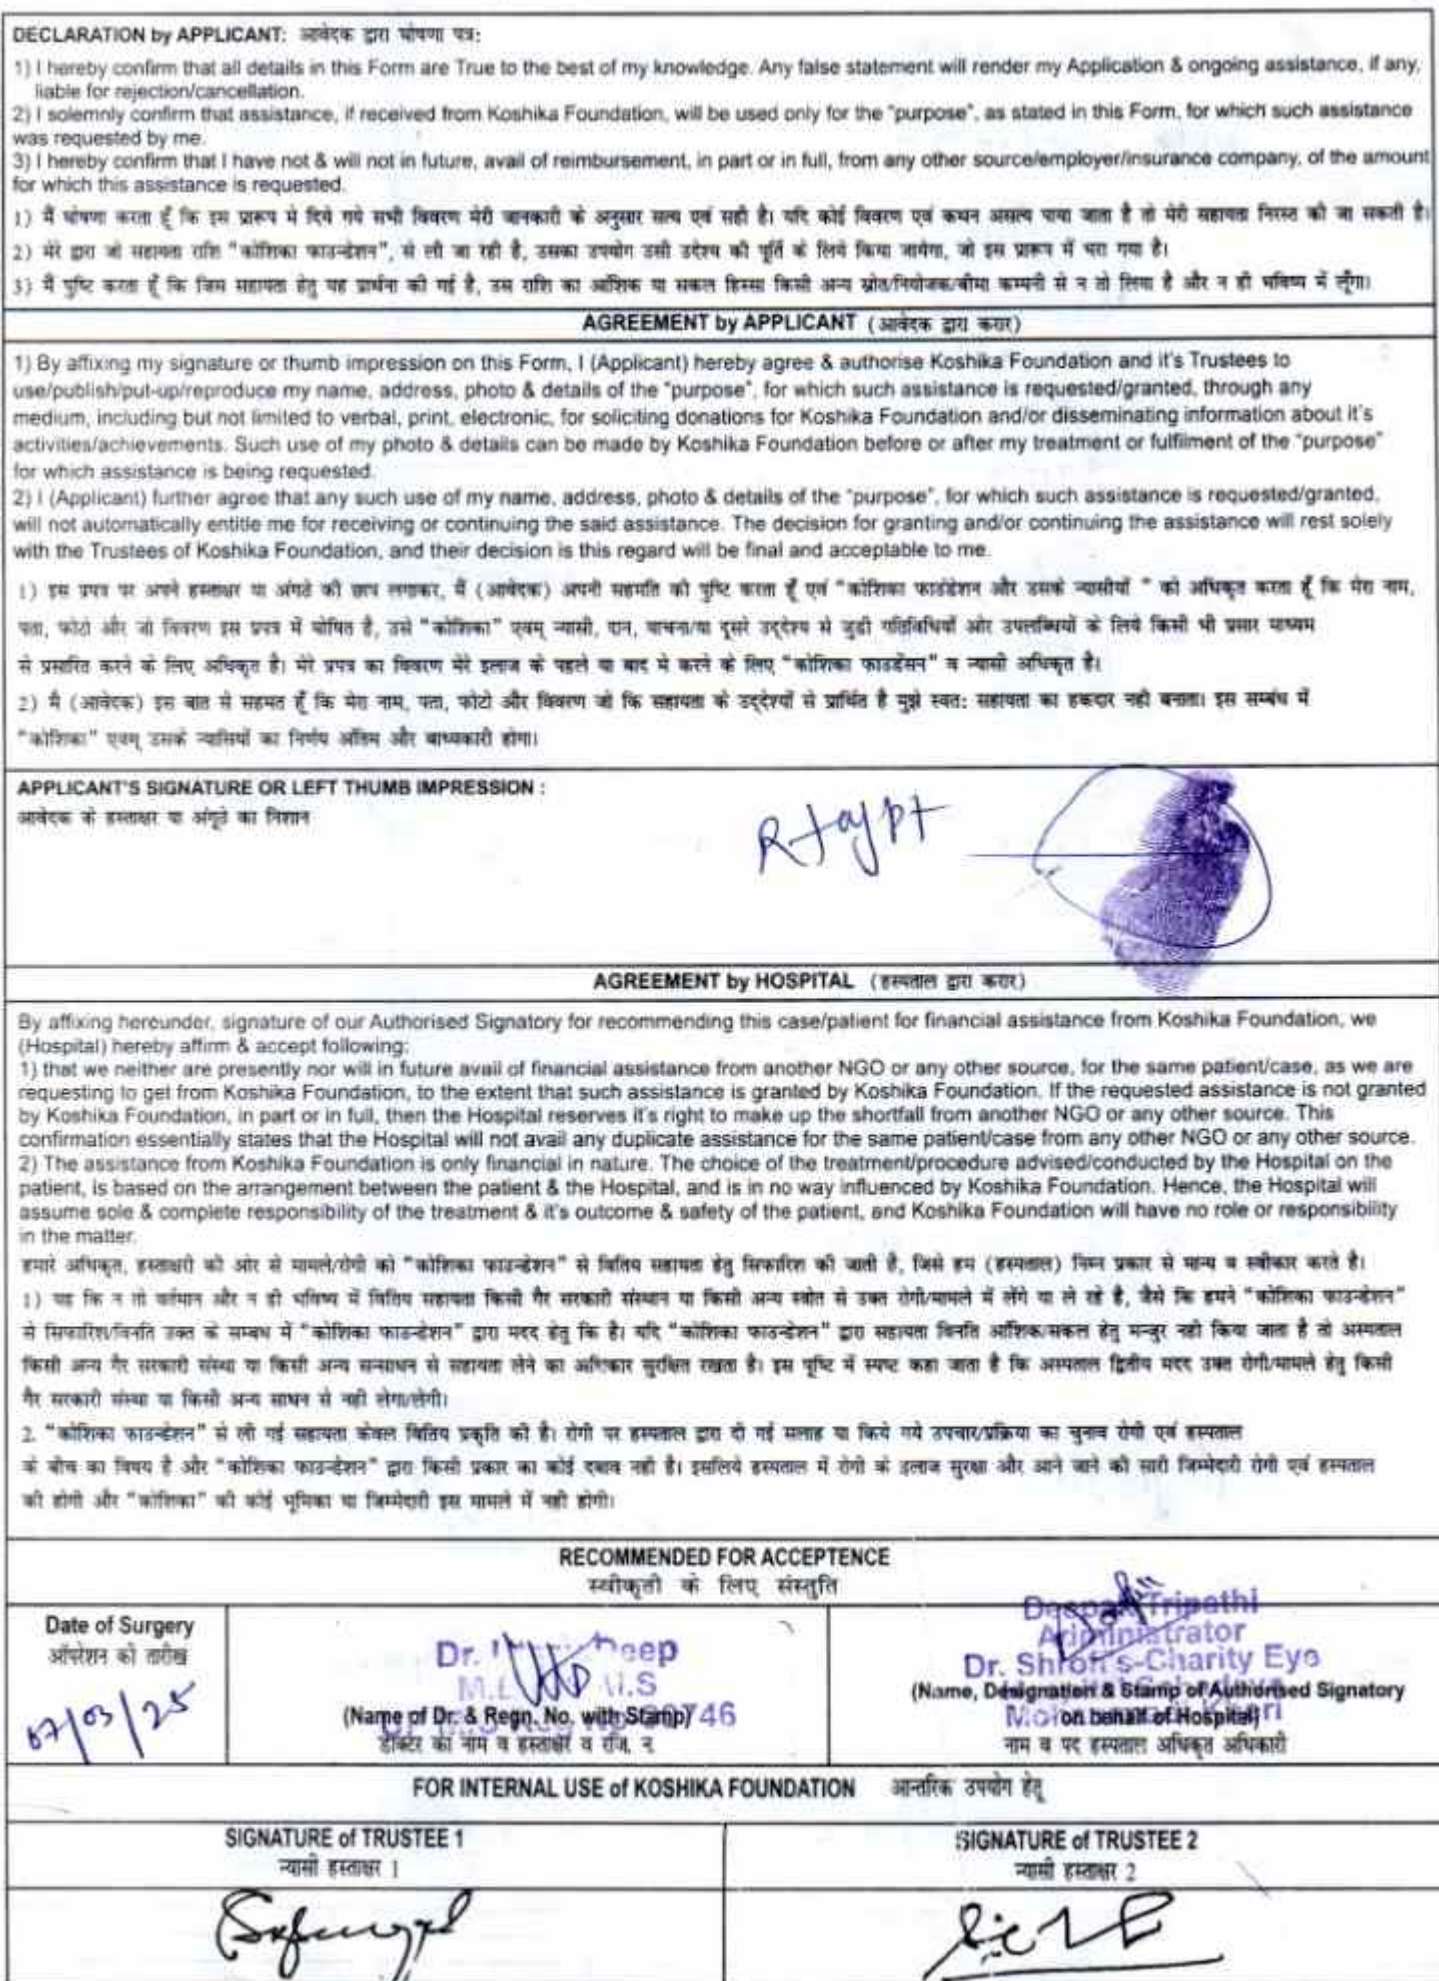 DECLARATION by APPLICANT: आवेदक द्वारा घोषणा पत्र:
1) I hereby confirm that all details in this Form are True to the best of my knowledge. Any false statement will render my Application & ongoing assistance, if any,
liable for rejection/cancellation.
2) I solemnly confirm that assistance, if received from Koshika Foundation, will be used only for the "purpose", as stated in this Form, for which such assistance
was requested by me.
3) I hereby confirm that I have not & will not in future, avail of reimbursement, in part or in full, from any other source/employer/insurance company, of the amount
for which this assistance is requested.
1) मैं घोषणा करता हूँ कि इस प्रारूप मे दिये गये सभी विवरण मेरी जानकारी के अनुसार सत्य एवं सही है। यदि कोई विवरण एवं कथन असत्य पाया जाता है तो मेरी सहायता निरस्त की जा सकती है।
2) मेरे द्वारा जो सहायता राशि "कोशिका फाउन्डेशन", से ली जा रही है, उसका उपयोग उसी उद्देश्य की पूर्ति के लिये किया जायेगा, जो इस प्रारूप में भरा गया है।
3) मैं पुष्टि करता हूँ कि जिस सहायता हेतु यह प्रार्थना की गई है, उस राशि का आंशिक या सकल हिस्सा किसी अन्य स्रोत/नियोजक/बीमा कम्पनी से न तो लिया है और न ही भविष्य में लूँगा।
AGREEMENT by APPLICANT (आवेदक द्वारा करार)
1) By affixing my signature or thumb impression on this Form, I (Applicant) hereby agree & authorise Koshika Foundation and it's Trustees to
use/publish/put-up/reproduce my name, address, photo & details of the "purpose", for which such assistance is requested/granted, through any
medium, including but not limited to verbal, print, electronic, for soliciting donations for Koshika Foundation and/or disseminating information about it's
activities/achievements. Such use of my photo & details can be made by Koshika Foundation before or after my treatment or fulfilment of the "purpose"
for which assistance is being requested.
2) I (Applicant) further agree that any such use of my name, address, photo & details of the "purpose", for which such assistance is requested/granted,
will not automatically entitle me for receiving or continuing the said assistance. The decision for granting and/or continuing the assistance will rest solely
with the Trustees of Koshika Foundation, and their decision is this regard will be final and acceptable to me.
1) इस प्रपत्र पर अपने हस्ताक्षर या अंगठे की छाप लगाकर, मैं (आवेदक) अपनी सहमति की पुष्टि करता हूँ एवं "कोशिका फाउंडेशन और उसके न्यासीयों " को अधिकृत करता हूँ कि मेरा नाम,
पता, फोटो और जो विवरण इस प्रपत्र में घोषित है, उसे "कोशिका" एवम् न्यासी, दान, याचना/या दूसरे उद्देश्य से जुडी गतिविधियों ओर उपलब्धियों के लिये किसी भी प्रसार माध्यम
से प्रसारित करने के लिए अधिकृत है। मेरे प्रपत्र का विवरण मेरे इलाज के पहले या बाद मे करने के लिए "कोशिका फाउडेंसन" व न्यासी अधिकृत है।
2) मै (आवेदक) इस बात से सहमत हूँ कि मेरा नाम, पता, फोटो और विवरण जो कि सहायता के उद्देश्यों से प्रार्थित है मुझे स्वत: सहायता का हकदार नही बनाता। इस सम्बंध में
"कोशिका" एवम् उसके न्यासियों का निर्णय अंतिम और बाध्यकारी होगा।
APPLICANT'S SIGNATURE OR LEFT THUMB IMPRESSION :
आवेदक के हस्ताक्षर या अंगूठे का निशान
AGREEMENT by HOSPITAL (हस्पताल द्वारा करार)
By affixing hereunder, signature of our Authorised Signatory for recommending this case/patient for financial assistance from Koshika Foundation, we
(Hospital) hereby affirm & accept following:
1) that we neither are presently nor will in future avail of financial assistance from another NGO or any other source, for the same patient/case, as we are
requesting to get from Koshika Foundation, to the extent that such assistance is granted by Koshika Foundation. If the requested assistance is not granted
by Koshika Foundation, in part or in full, then the Hospital reserves it's right to make up the shortfall from another NGO or any other source. This
confirmation essentially states that the Hospital will not avail any duplicate assistance for the same patient/case from any other NGO or any other source.
2) The assistance from Koshika Foundation is only financial in nature. The choice of the treatment/procedure advised/conducted by the Hospital on the
patient, is based on the arrangement between the patient & the Hospital, and is in no way influenced by Koshika Foundation. Hence, the Hospital will
assume sole & complete responsibility of the treatment & it's outcome & safety of the patient, and Koshika Foundation will have no role or responsibility
in the matter.
हमारे अधिकृत, हस्ताक्षरी की ओर से मामले/रोगी को "कोशिका फाउन्डेशन" से वितिय सहायता हेतु सिफारिश की जाती है, जिसे हम (हस्पताल) निम्न प्रकार से मान्य व स्वीकार करते है।
1) यह कि न तो वर्तमान और न ही भविष्य में वितिय सहायता किसी गैर सरकारी संस्थान या किसी अन्य स्त्रोत से उक्त रोगी/मामले में लेंगे या ले रहे है, जैसे कि हमने "कोशिका फाउन्डेशन"
से सिफारिश/विनति उक्त के सम्बध में "कोशिका फाउन्डेशन" द्वारा मदद हेतु कि है। यदि "कोशिका फाउन्डेशन" द्वारा सहायता विनति आंशिक/सकल हेतु मन्जुर नही किया जाता है तो अस्पताल
किसी अन्य गैर सरकारी संस्था या किसी अन्य सन्साधन से सहायता लेने का अधिकार सुरक्षित रखता है। इस पुष्टि में स्पष्ट कहा जाता है कि अस्पताल द्वितीय मदद उक्त रोगी/मामले हेतु किसी
गैर सरकारी संस्था या किसी अन्य साधन से नही लेगा/लेगी।
2. "कोशिका फाउन्डेशन" से ली गई सहायता केवल वितिय प्रकृति की है। रोगी पर हस्पताल द्वारा दी गई सलाह या किये गये उपचार/प्रक्रिया का चुनाव रोगी एवं हस्पताल
के बीच का विषय है और "कोशिका फाउन्डेशन" द्वारा किसी प्रकार का कोई दबाव नही है। इसलिये हस्पताल में रोगी के इलाज सुरक्षा और आने जाने की सारी जिम्मेदारी रोगी एवं हस्पताल
की होगी और "कोशिका" की कोई भूमिका या जिम्मेदारी इस मामले में नही होगी।
RECOMMENDED FOR ACCEPTENCE
स्वीकृती के लिए संस्तुति
Date of Surgery
ऑपरेशन की तारीख
07/03/25
Dr.
(Name of Dr. & Regn. No. with Stamp)
डॉक्टर का नाम व हस्ताक्षर व रजि. न
Deepak Tripathi
Administrator
Dr. Shroff's-Charity Eye
(Name, Designation & Stamp of Authorised Signatory
on behalf of Hospital)
नाम व पद हस्पताल अधिकृत अधिकारी
FOR INTERNAL USE of KOSHIKA FOUNDATION आन्तरिक उपयोग हेतू
SIGNATURE of TRUSTEE 1
न्यासी हस्ताक्षर 1
SIGNATURE of TRUSTEE 2
न्यासी हस्ताक्षर 2